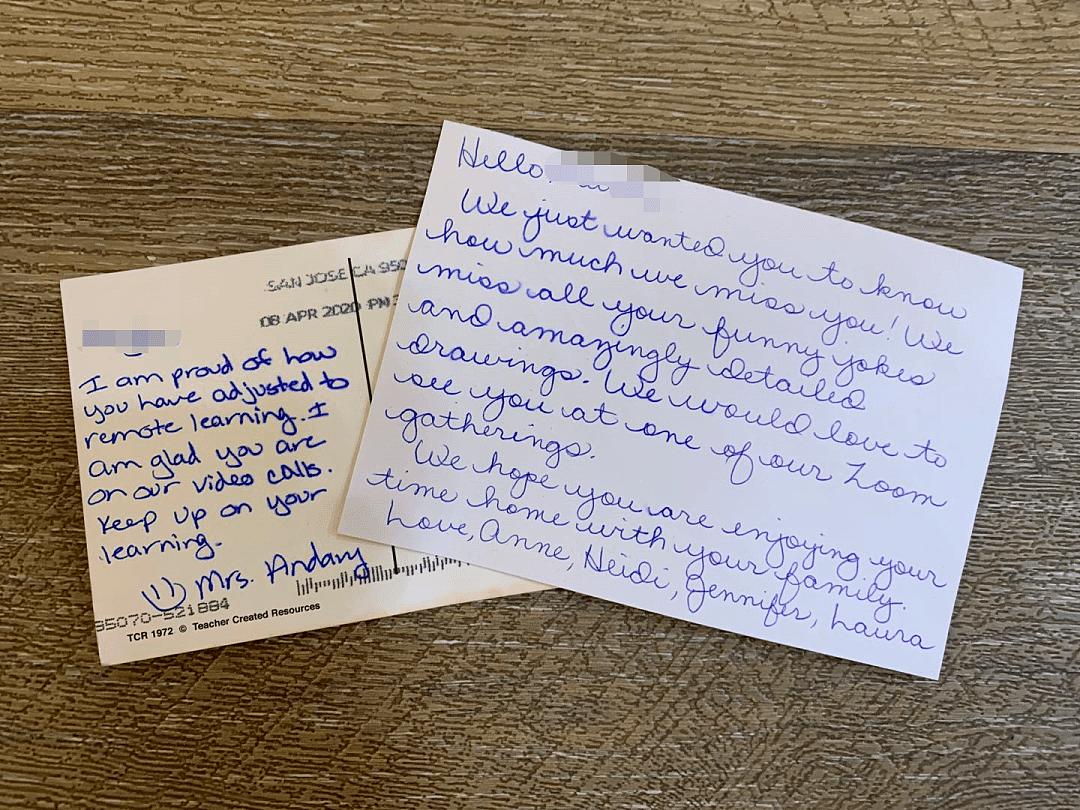 SAN JOSE CA 950
08 APR 2020 PM
I am proud of how
you have adjusted to
remote learning. I
am glad you are
on our video calls.
Keep up on your
learning.
Mrs. Andany
95070-521884
TCR 1972 © Teacher Created Resources
Hello
We just wanted you to know
how much we miss you! We
miss all your funny jokes
and amazingly detailed
drawings. We would love to
see you at one of our Zoom
gatherings.
We hope you are enjoying your
time home with your family.
Love, Anne, Heidi, Jennifer, Laura